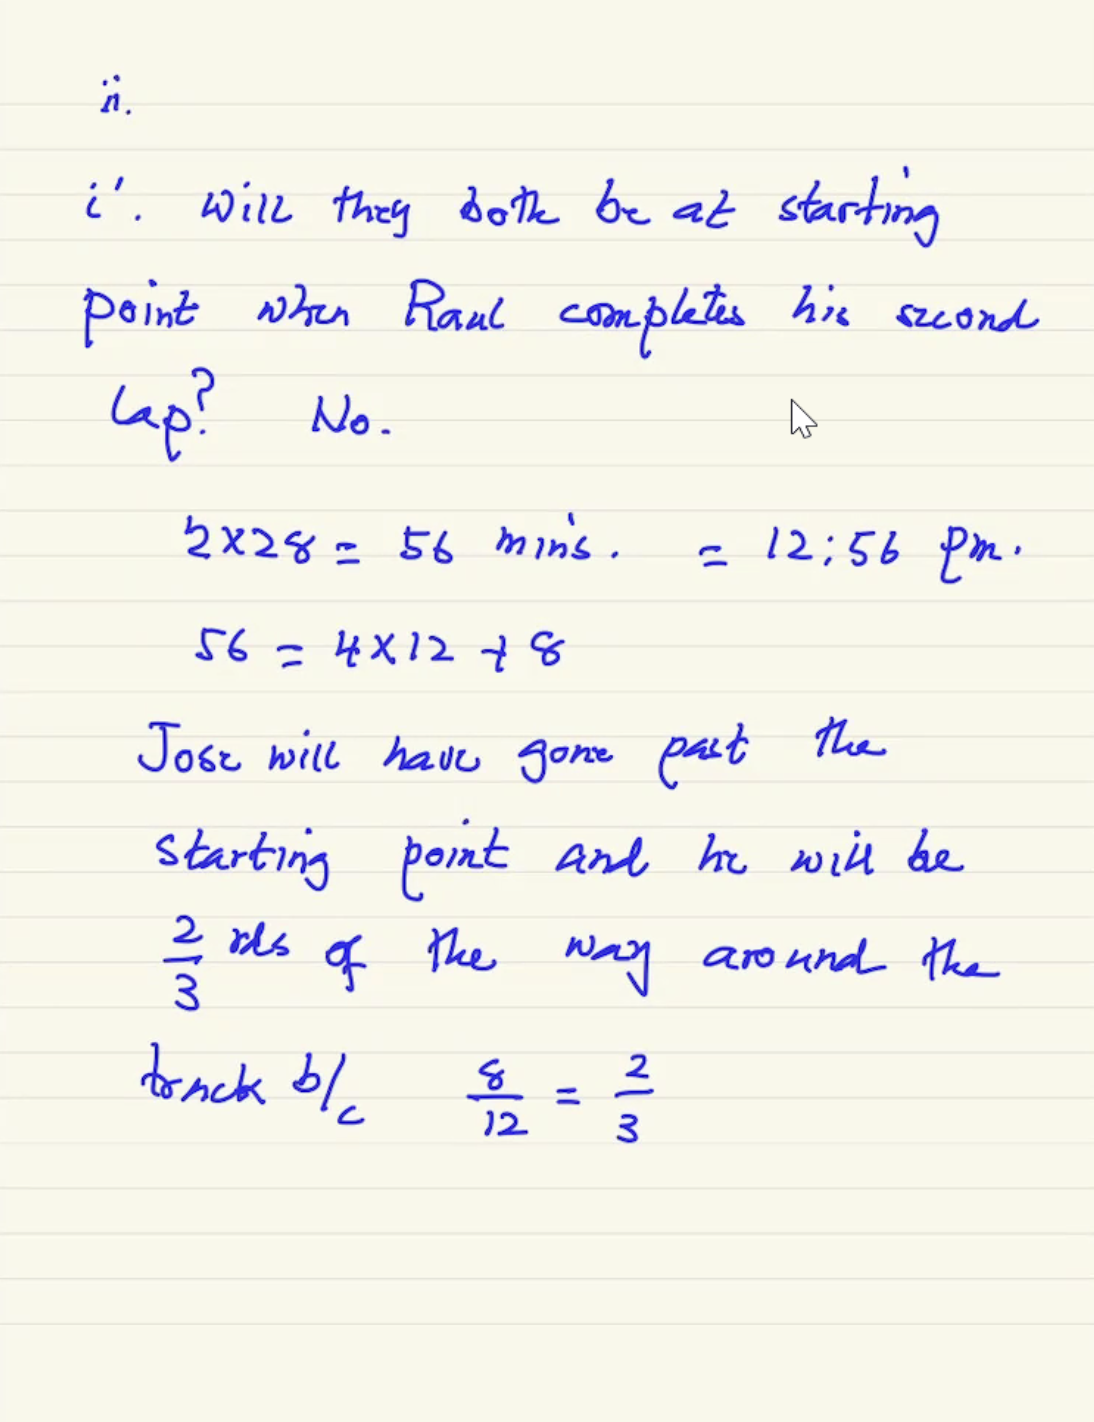 ii.
i'. Will they both be at starting
point when Raul completes his second
lap? No.
2x28 = 56 mins. = 12:56 pm.
56 = 4x12 + 8
Jose will have gone past the
starting point and he will be
2/3 rds of the way around the
track b/c 8/12 = 2/3